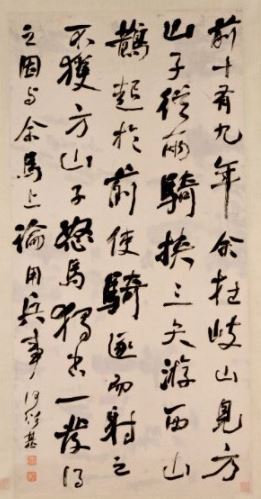 前十有九年余在岐山見方
山子從兩騎挾三矢游西山
鵲起於前使騎逐而射之
不獲方山子怒馬獨出一發得
之因与余馬上論用兵事
何紹基